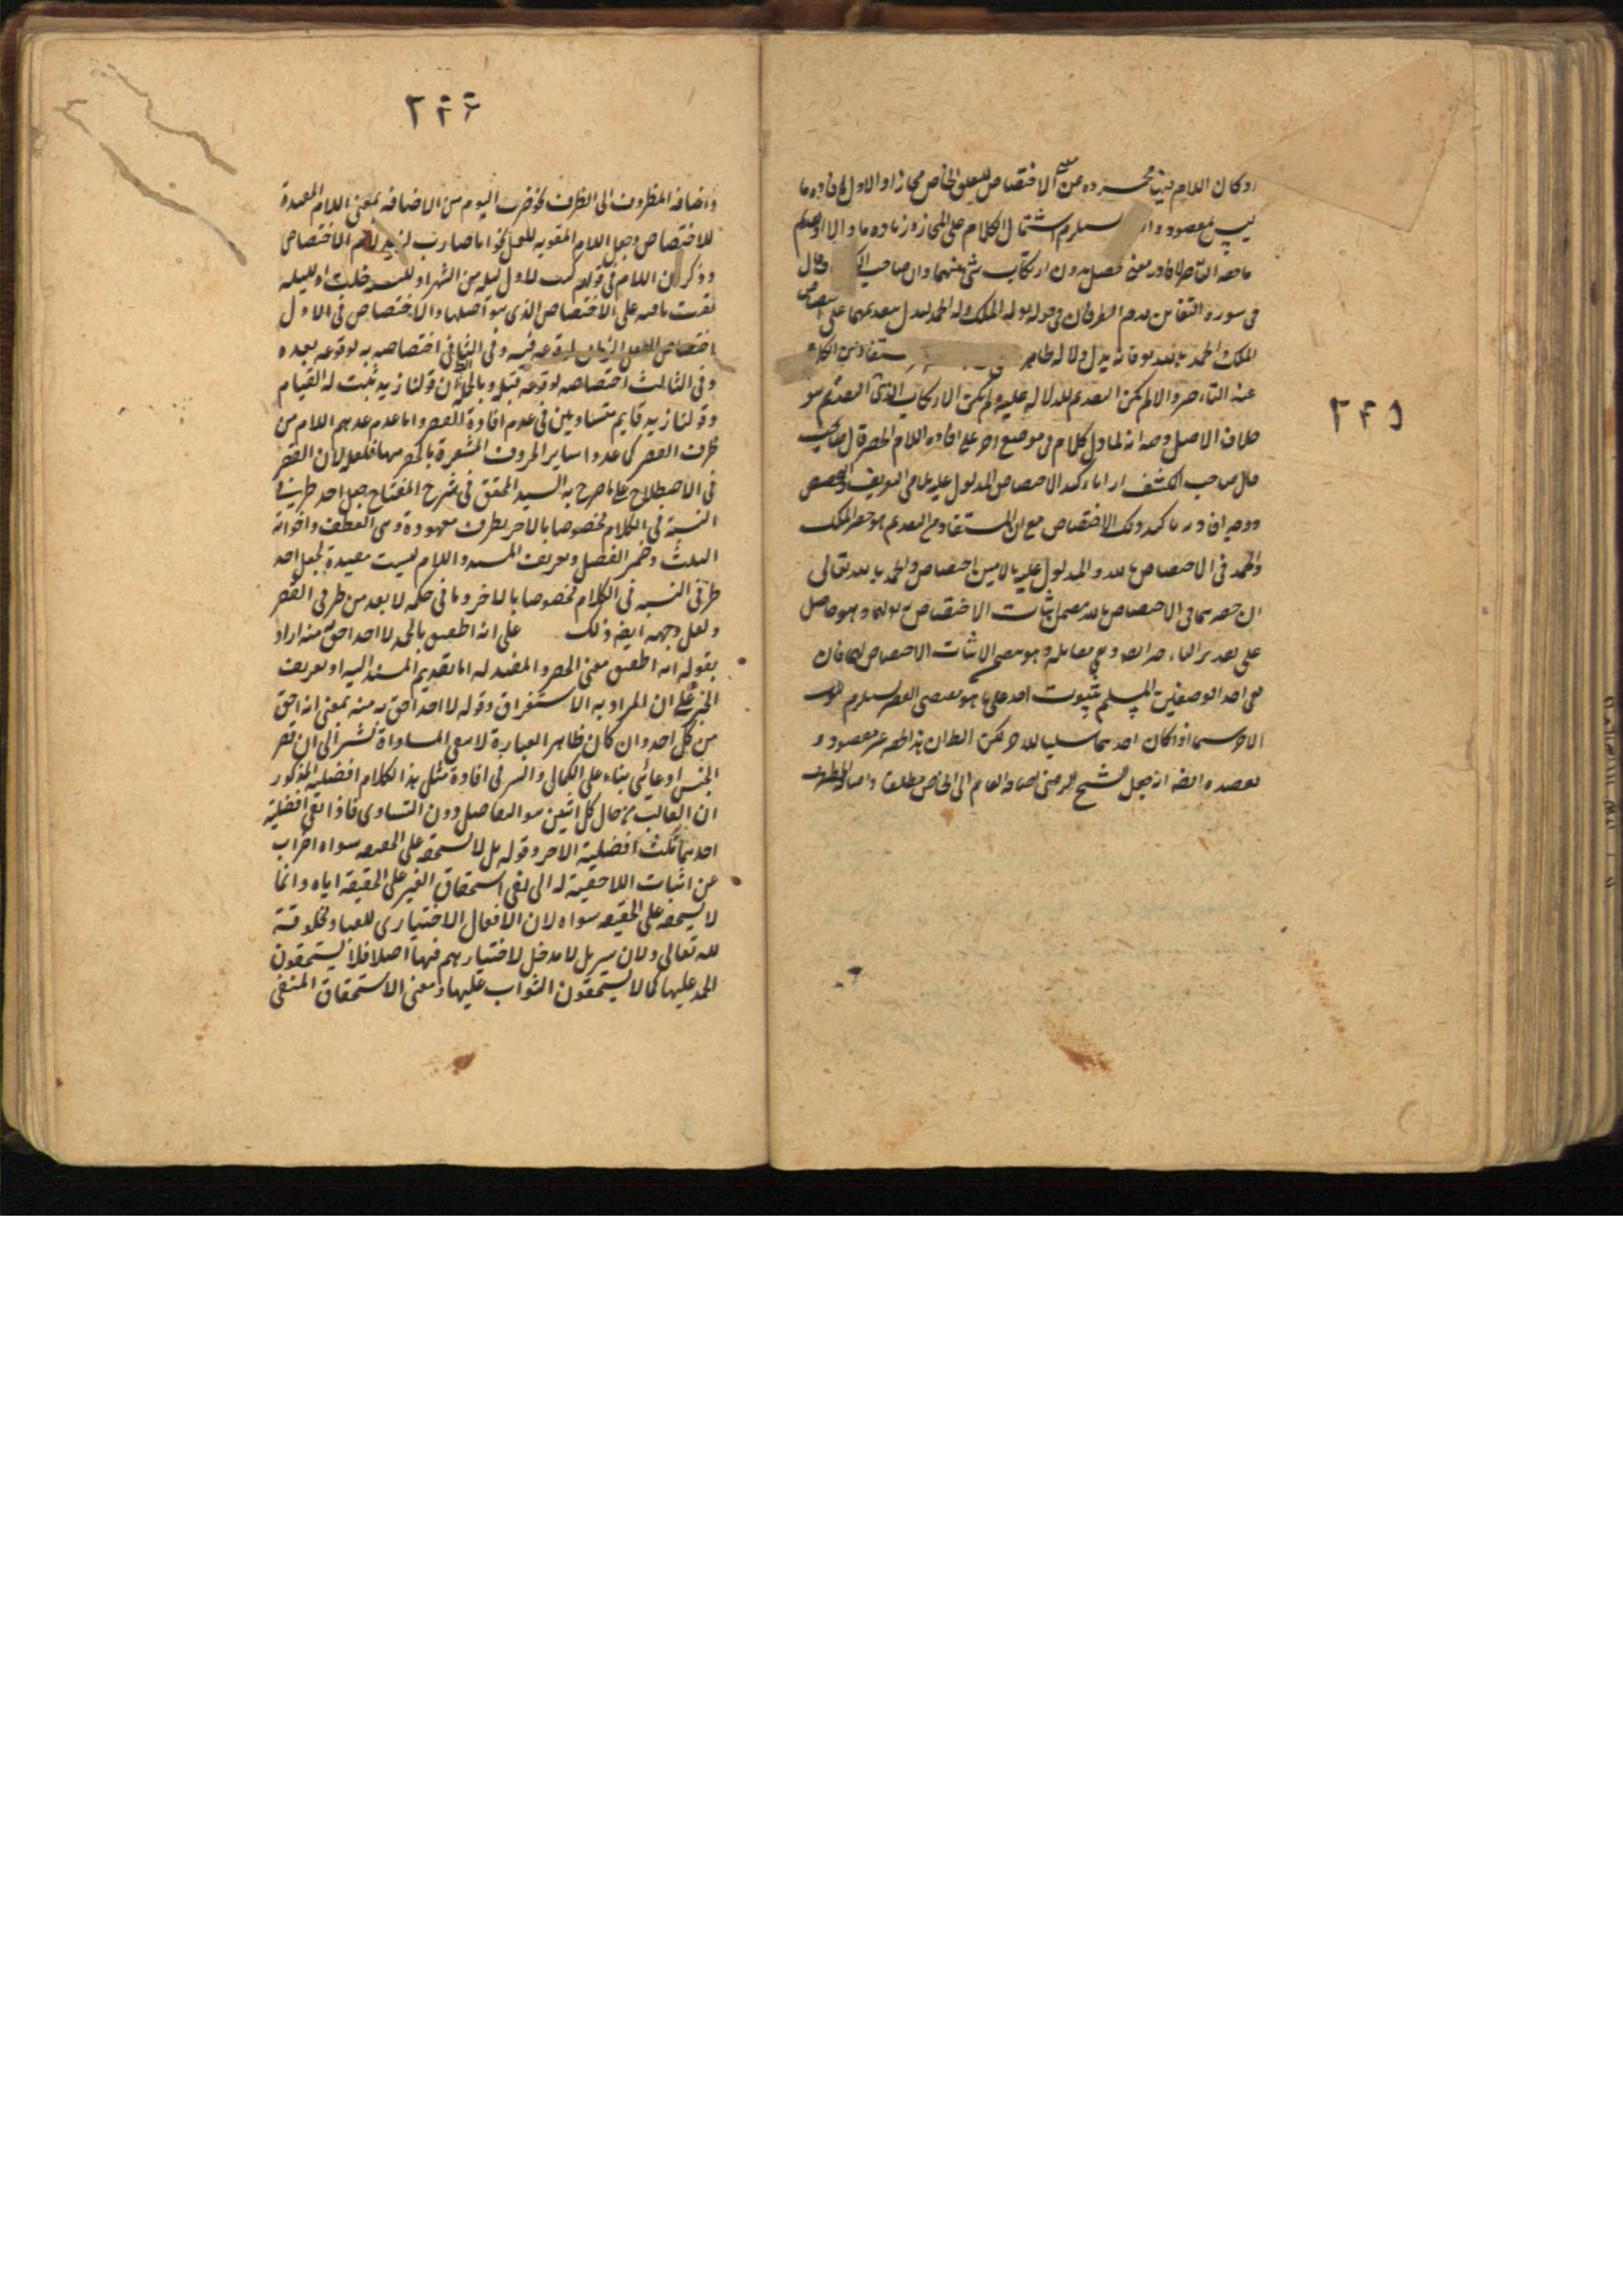 ٢٤٥
او كان اللام فيه مجردة عن معنى الاختصاص للتعلق الخاص مجازا والاول
ليس بمقصود يستلزم اشتمال الكلام على المجاز وزيادة
ما حقه التاخير لافاد معنى حصل بدون ارتكاب شئ منهما وان صاحب قال
فى سورة التغابن قدم الظرفان فى قوله له الملك وله الحمد ليدل بتقديمهما على اختصاص
الملك والحمد بالله فانه يدل دلالة ظاهرة مستفاد من الكلام
عند التاخير والا لم يكن التقديم للدلالة عليه ولم يكن الارتكاب التقديم هو
خلاف الاصل وجه انه لما دل كلام فى موضع اخر على افادة اللام الحصر قال صاحب
قال صاحب الكشف اراد تاكيد الاختصاص المدلول عليه بلامى التعريف والتخصيص
ووجه افادته تاكيد ذلك الاختصاص مع ان المستفاد من التقديم هو حصر الملك
والحمد فى الاختصاص بالله والمدلول عليه باللامين اختصاص الحمد بالله تعالى
ان حصرهما فى الاختصاص بالله يتضمن اثبات الاختصاص به لهما وهو حاصل
على تقدير التاخير ايضا ونفى مقابله وهو يتضمن الاثبات الاختصاص لهما فان
نفى احد الوصفين المسلم بثبوت احدهما على ما هو مقتضى القصر يستلزم ثبوت
الاخر سيما اذا كان احدهما سلبا للاخر لكن الظاهر ان هذا الحصر غير مقصود و
يعضده ايضا انه جعل الشيخ الرضى اضافة العام الى الخاص مطلقا واضافة المظروف
٢٤٦
واضافة المظروف الى الظرف نحو ضرب اليوم من الاضافة بمعنى اللام المفيدة
للاختصاص وجعل اللام المقوية للعمل نحو انا ضارب لزيد لام الاختصاص
وذكر ان اللام فى قولهم كتبت لاول ليلة من الشهر او لليلة خلت او لليلة
بقيت باقية على الاختصاص الذى هو اصلها والاختصاص فى الاول
اختصاص الفعل الزمان لوقوعه فيه وفى الثانى اختصاصه به لوقوعه بعده
وفى الثالث اختصاصه لوقوعه قبله وبالجملة ان قولنا زيد يثبت له القيام
وقولنا زيد قايم متساويين فى عدم افادة القصر واما عدم عدهم اللام من
طرق القصر كما عدوا ساير الحروف المشعرة بالحصر منها فلعله لان القصر
فى الاصطلاح على ما صرح به السيد المحقق فى شرح المفتاح جعل احد طرفى
النسبة فى الكلام مخصوصا بالاخر بطرق معهودة وهى العطف واخواته
الثلث وضمير الفصل وتعريف المسند واللام ليست مفيدة لجعل احد
طرفى النسبة فى الكلام مخصوصا بالاخر وما فى حكمه لا يعد من طرق القصر
ولعل وجهه ايضا ذلك على انه اطبق بالحمد لا احد احق به منه اراد
بقوله انه اطبق معنى الحصر والمفيد له اما تقديم المسند اليه او تعريف
الخبر على ان المراد به الاستغراق وقوله لا احد احق به منه بمعنى انه احق
من كل احد وان كان ظاهر العبارة لا نفى المساواة نشير الى ان قصر
الجنس ادعائى بناء على الكمالى والسر فى افادة مثل هذا الكلام افضلية المذكور
ان الغالب من حال كل اثنين هو التفاضل دون التساوى فاذا نفى افضلية
احدهما ثبت افضلية الاخر وقوله بل لا يستحقه على الحقيقة سواه اضراب
عن اثبات الاحقية له الى نفى استحقاق الغير على الحقيقة اياه وانما
لا يستحقه على الحقيقة سواه لان الافعال الاختيارى للعباد مخلوقة
لله تعالى ولا تاثير بل لا مدخل لاختيارهم فيها اصلا فلا يستحقون
الحمد عليها كما لا يستحقون الثواب عليها ومعنى الاستحقاق المنفى